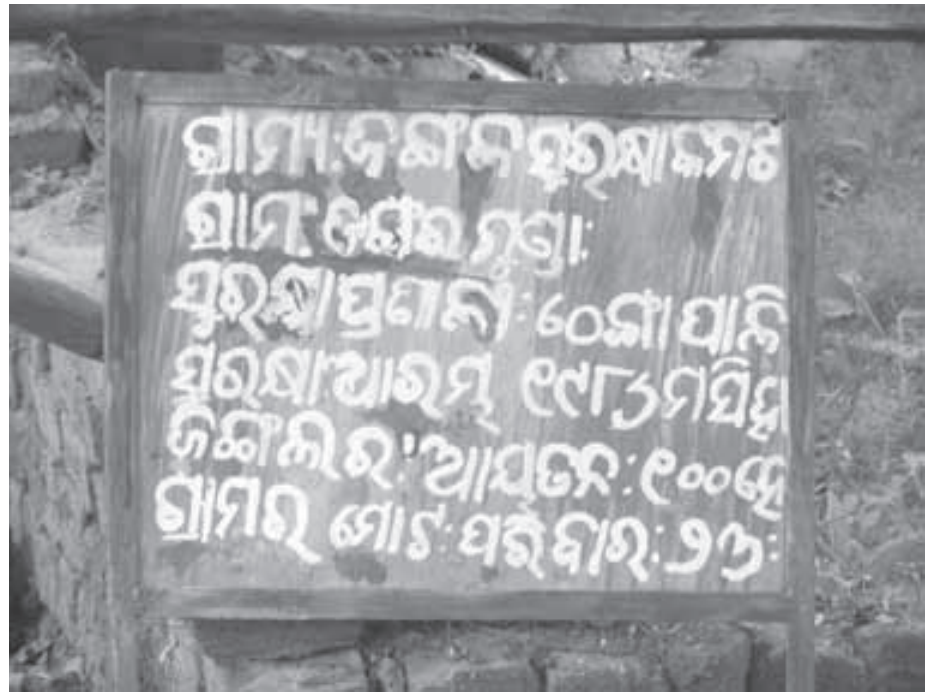 ଗ୍ରାମ୍ୟ:ଜଙ୍ଗଲ ସୁରକ୍ଷା କମିଟି
ଗ୍ରାମ:
ସୁରକ୍ଷା ପ୍ରଣାଳୀ: ଠେଙ୍ଗା ପାଳି
ସୁରକ୍ଷା ଆରମ୍ଭ ୧୯୮୬ ମସିହା
ଜଙ୍ଗଲର: ଆୟତନ: ୧୦୦ହେ
ଗ୍ରାମର ମୋଟ: ପରିବାର: ୨୬: